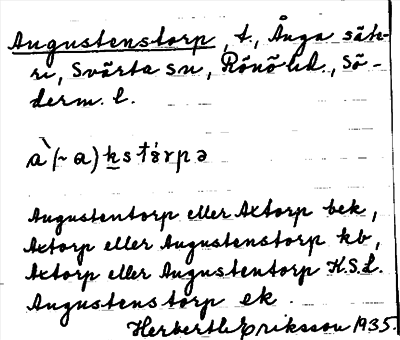 Augustenstorp, t., Ånga sät-
ri, Svärta sn, Rönö hd., Sö-
derm. l.
à (~ a) k s t ó r p ə
Augustentorp eller Axtorp bek,
Axtorp eller Augustenstorp kb,
Axtorp eller Augustentorp K.S.L.
Augustenstorp ek.
Herberth Eriksson 1935.